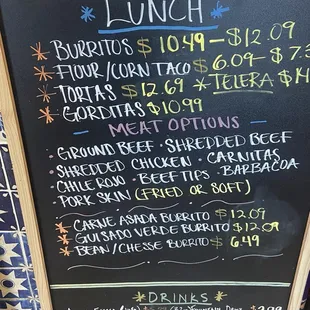 LUNCH
BURRITOS $ 10.49 - $12.09
FLOUR/CORN TACO $ 6.09 - $ 7.3
TORTAS $ 12.69 * TELERA $14
GORDITAS $10.99
MEAT OPTIONS
· GROUND BEEF · SHREDDED BEEF
· SHREDDED CHICKEN · CARNITAS
· CHILE ROJO · BEEF TIPS · BARBACOA
· PORK SKIN (FRIED OR SOFT)
* CARNE ASADA BURRITO $12.09
* GUISADO VERDE BURRITO $12.09
* BEAN/CHESSE BURRITO $ 6.49
* DRINKS *